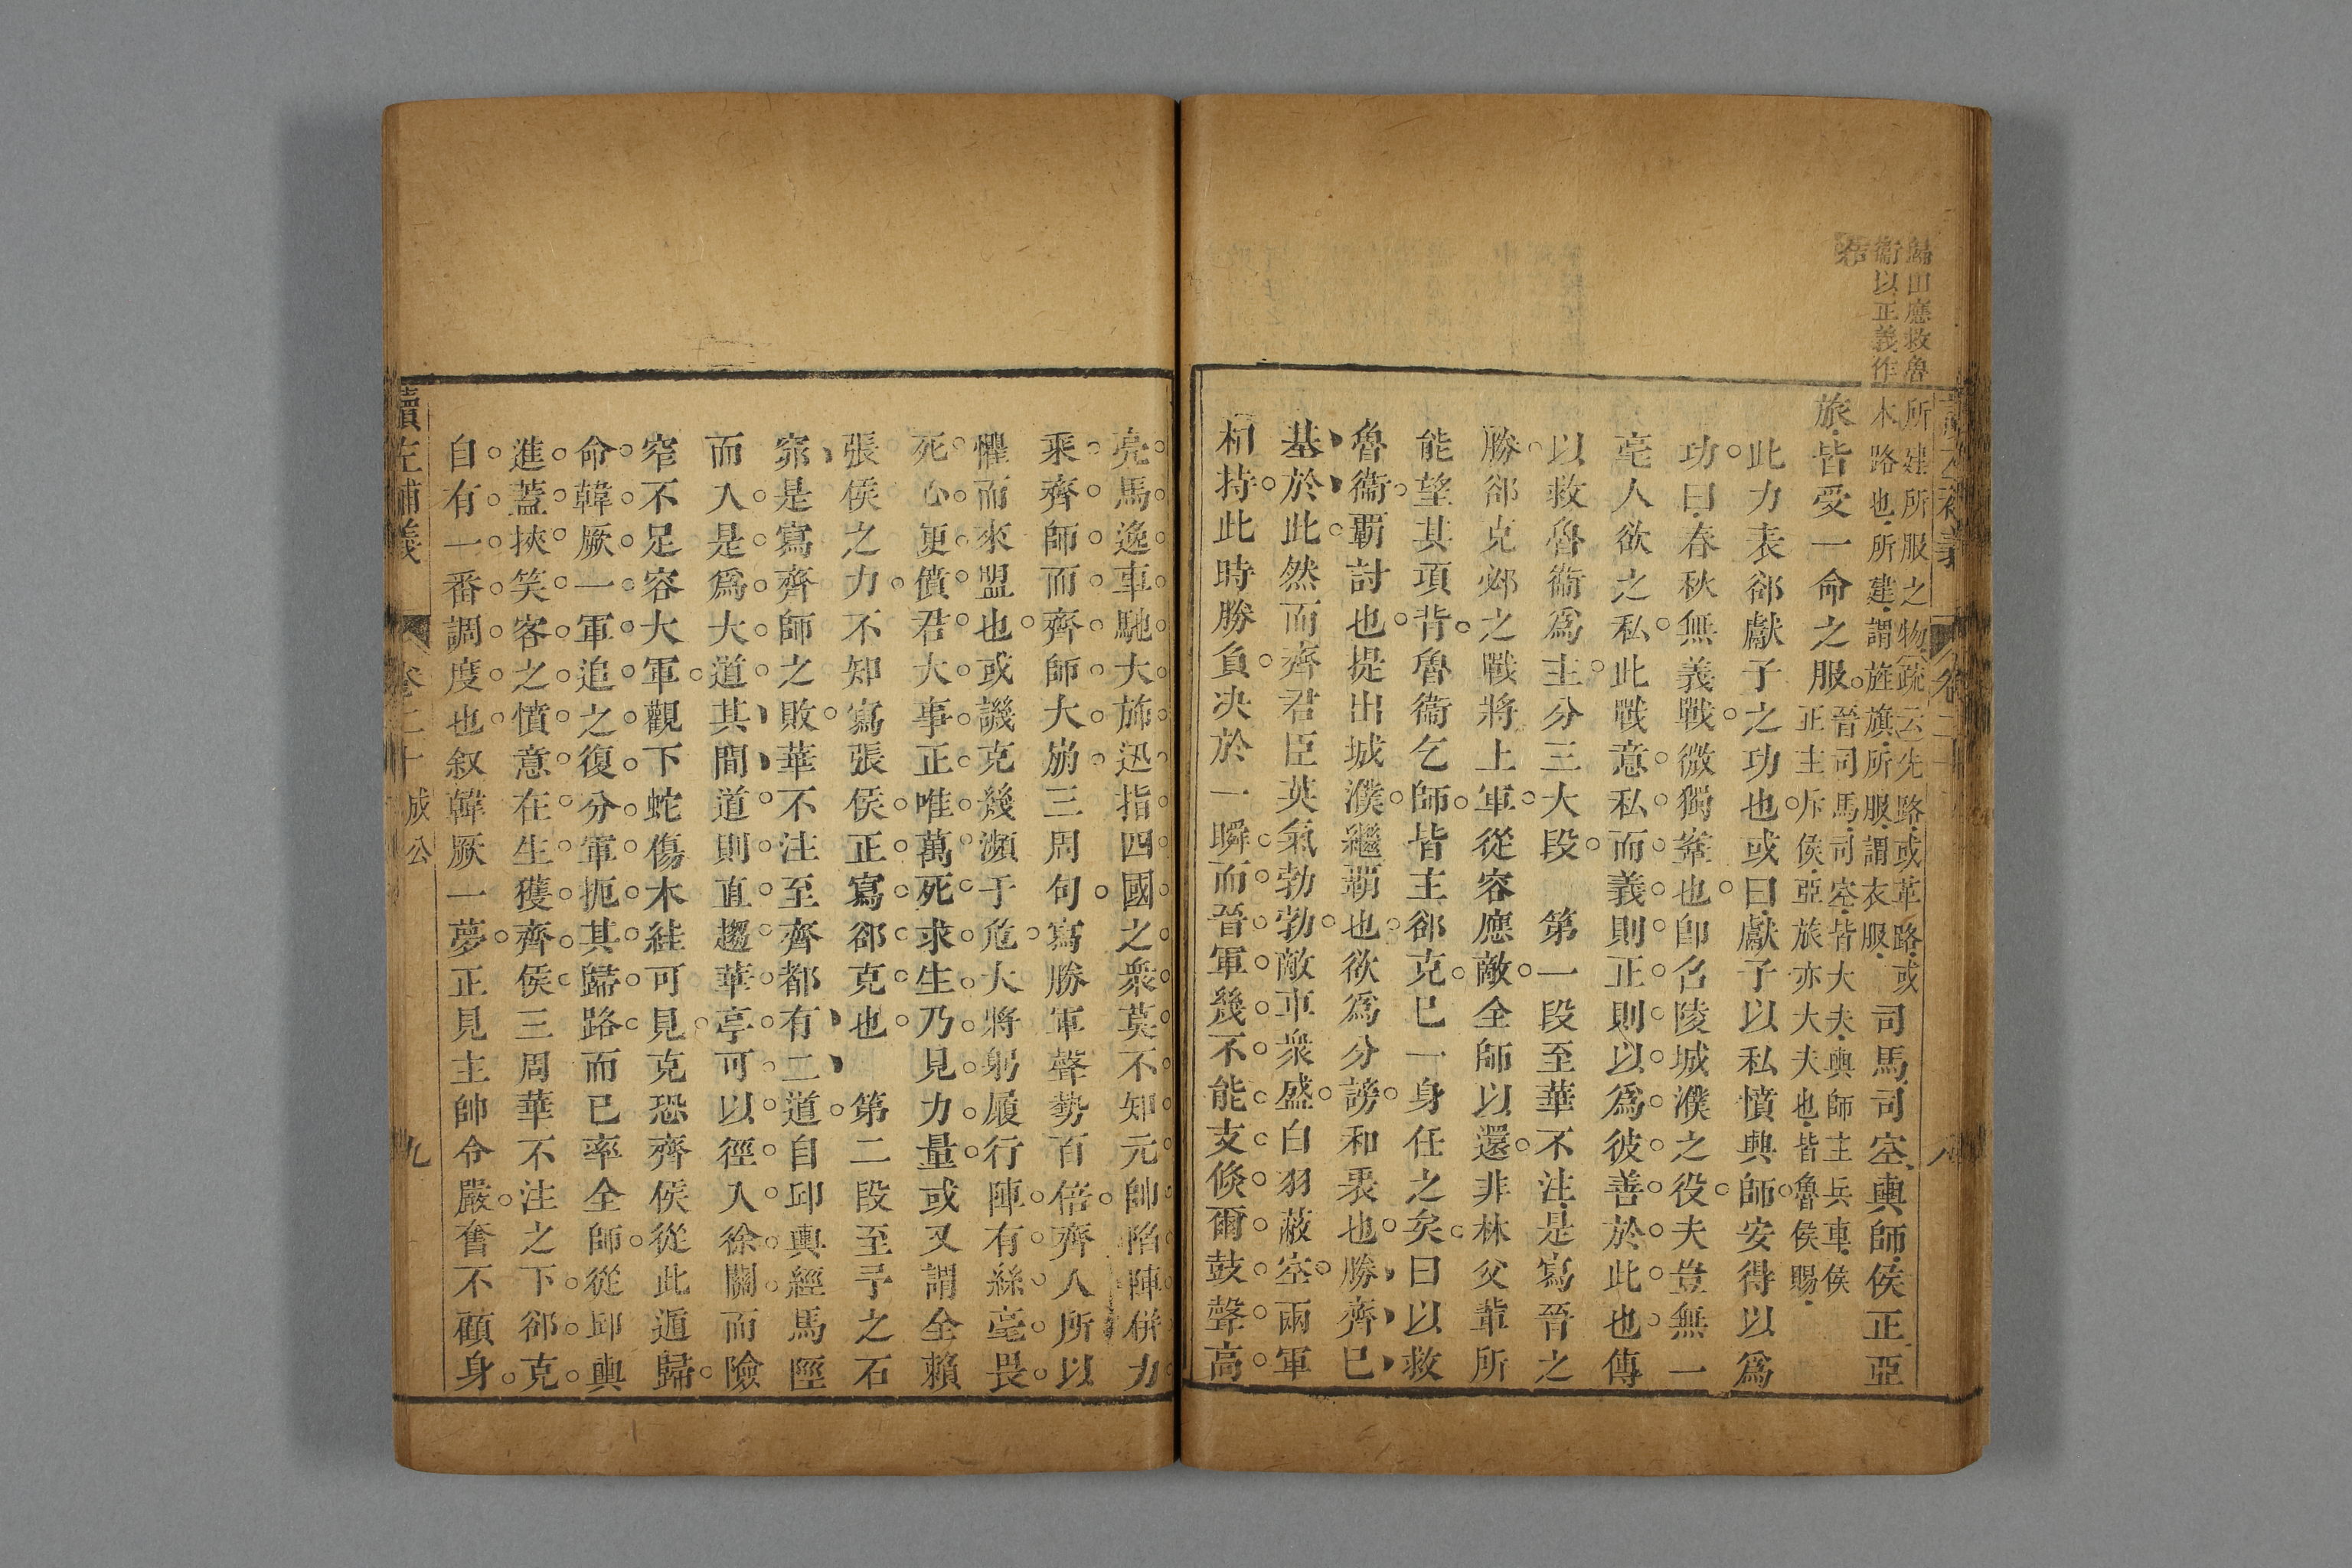 歸田應救魯
衛以正義作
結
所建所服之物疏云先路或革路或
木路也所建謂旌旗所服謂衣服
司馬司空輿師侯正亞
旅皆受一命之服
晉司馬司空皆大夫輿師主兵車侯
正主斥侯亞旅亦大夫也皆魯侯賜
此力表郤獻子之功也或曰獻子以私憤興師安得以爲
功曰春秋無義戰微獨鞌也卽召陵城濮之役夫豈無一
毫人欲之私此戰意私而義則正則以爲彼善於此也傳
以救魯衞爲主分三大段　第一段至華不注是寫晉之
勝郤克邲之戰將上軍從容應敵全師以還非林父輩所
能望其項背魯衞乞師皆主郤克已一身任之矣曰以救
魯衞覇討也提出城濮繼覇也欲爲分謗和衷也勝齊已
基於此然而齊君臣英氣勃勃敵車衆盛白羽蔽空兩軍
相持此時勝負決於一瞬而晉軍幾不能支倐爾鼓聲高
亮馬逸車馳大斾迅指四國之衆莫不知元帥陷陣併力
乘齊師而齊師大崩三周句寫勝軍聲勢百倍齊人所以
懼而來盟也或譏克幾瀕于危大將躬履行陣有絲毫畏
死心更僨君大事正唯萬死求生乃見力量或又謂全賴
張侯之力不知寫張侯正寫郤克也　第二段至予之石
窌是寫齊師之敗華不注至齊都有二道自邱輿經馬陘
而入是爲大道其間道則直趨華亭可以徑入徐關而險
窄不足容大軍觀下蛇傷木絓可見克恐齊侯從此遁歸
命韓厥一軍追之復分軍扼其歸路而已率全師從邱輿
進蓋挾笑客之憤意在生獲齊侯三周華不注之下郤克
自有一番調度也叙韓厥一夢正見主帥令嚴奮不顧身
讀左補義
卷二十
成公
九